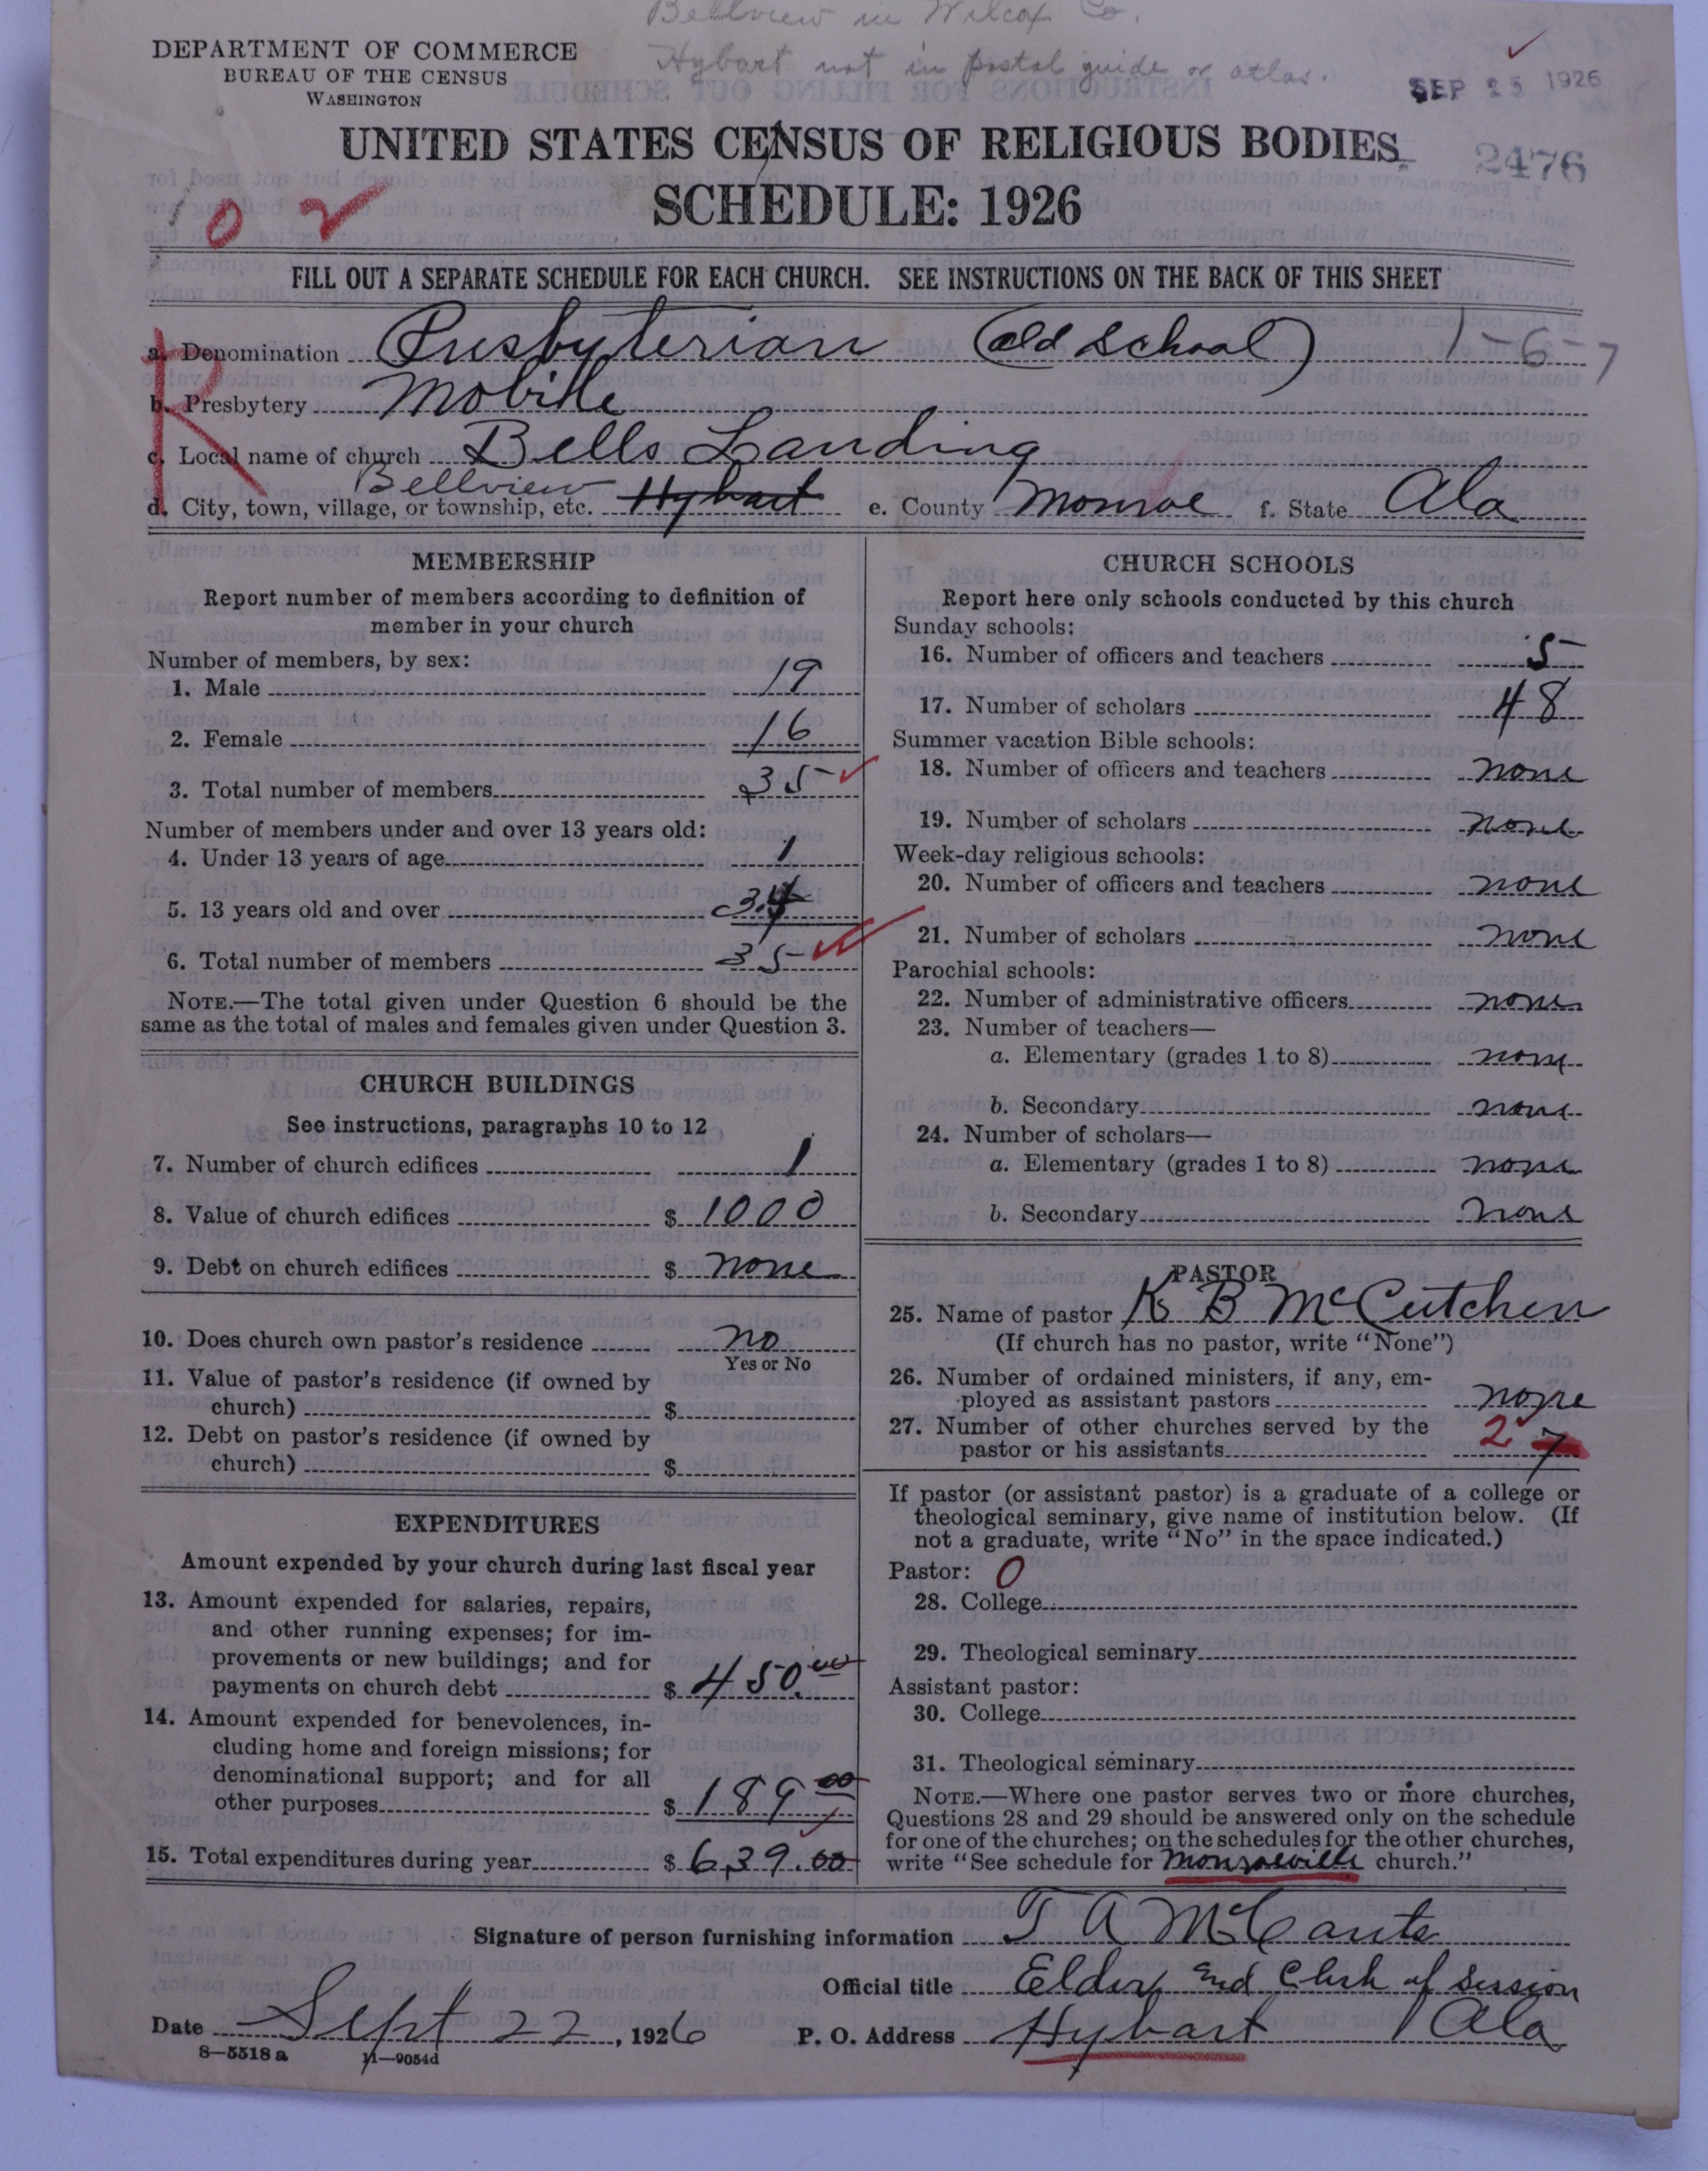 Bellview in Wilcox Co.
Hybart not in postal guide or atlas.
DEPARTMENT OF COMMERCE
BUREAU OF THE CENSUS
WASHINGTON
SEP 25 1926
UNITED STATES CENSUS OF RELIGIOUS BODIES
2476
SCHEDULE: 1926
102
FILL OUT A SEPARATE SCHEDULE FOR EACH CHURCH. SEE INSTRUCTIONS ON THE BACK OF THIS SHEET
R
a. Denomination Presbyterian (old school) 1-6-7
b. Presbytery Mobile
c. Local name of church Bells Landing
Bellview
d. City, town, village, or township, etc. Hybart e. County Monroe f. State Ala
MEMBERSHIP
Report number of members according to definition of
member in your church
Number of members, by sex:
1. Male 19
2. Female 16
3. Total number of members 35
Number of members under and over 13 years old:
4. Under 13 years of age 1
5. 13 years old and over 34
6. Total number of members 35
NOTE.—The total given under Question 6 should be the
same as the total of males and females given under Question 3.
CHURCH BUILDINGS
See instructions, paragraphs 10 to 12
7. Number of church edifices 1
8. Value of church edifices $ 1000
9. Debt on church edifices $ none
10. Does church own pastor's residence no
Yes or No
11. Value of pastor's residence (if owned by
church) $
12. Debt on pastor's residence (if owned by
church) $
EXPENDITURES
Amount expended by your church during last fiscal year
13. Amount expended for salaries, repairs,
and other running expenses; for im-
provements or new buildings; and for
payments on church debt $ 450.00
14. Amount expended for benevolences, in-
cluding home and foreign missions; for
denominational support; and for all
other purposes $ 189 00
15. Total expenditures during year $ 639.00
CHURCH SCHOOLS
Report here only schools conducted by this church
Sunday schools:
16. Number of officers and teachers 5
17. Number of scholars 48
Summer vacation Bible schools:
18. Number of officers and teachers none
19. Number of scholars none
Week-day religious schools:
20. Number of officers and teachers none
21. Number of scholars none
Parochial schools:
22. Number of administrative officers none
23. Number of teachers—
a. Elementary (grades 1 to 8) none
b. Secondary none
24. Number of scholars—
a. Elementary (grades 1 to 8) none
b. Secondary none
PASTOR
25. Name of pastor K B McCutchen
(If church has no pastor, write "None")
26. Number of ordained ministers, if any, em-
ployed as assistant pastors none
27. Number of other churches served by the
pastor or his assistants 2 7
If pastor (or assistant pastor) is a graduate of a college or
theological seminary, give name of institution below. (If
not a graduate, write "No" in the space indicated.)
Pastor: 0
28. College
29. Theological seminary
Assistant pastor:
30. College
31. Theological seminary
NOTE.—Where one pastor serves two or more churches,
Questions 28 and 29 should be answered only on the schedule
for one of the churches; on the schedules for the other churches,
write "See schedule for Monroeville church."
Signature of person furnishing information T A McCants
Official title Elder and Clerk of Session
Date Sept 22, 1926 P. O. Address Hybart Ala
8—5518 a 11—9054d